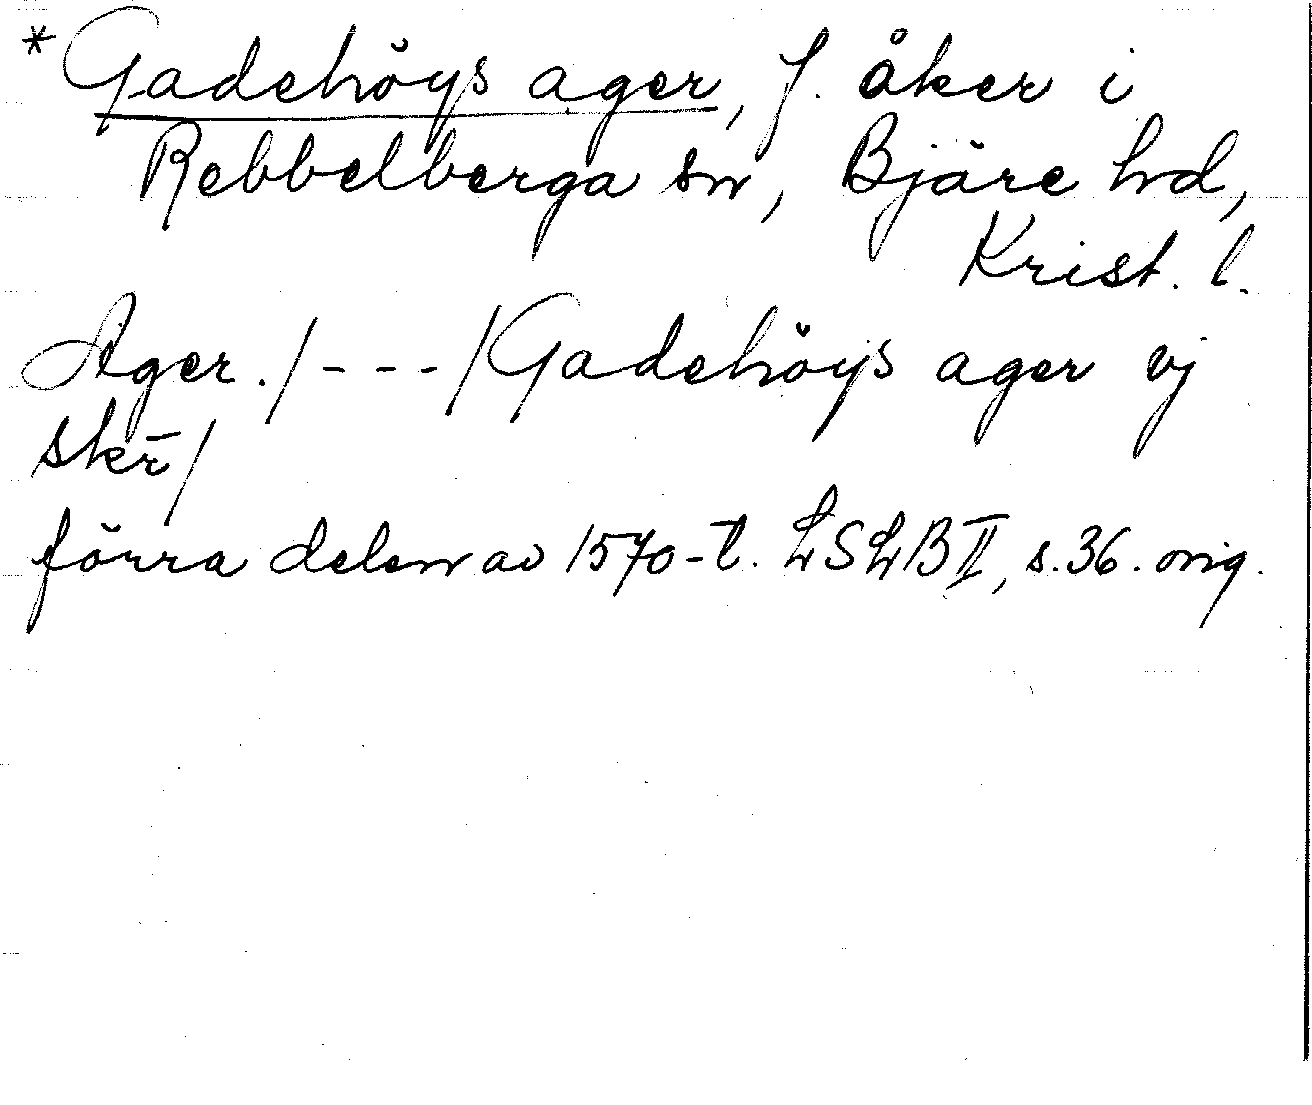 * Gadehöys ager, f. åker i
Rebbelberga sn, Bjäre hd,
Krist. l.
Ager. /---/ Gadehöys ager vj
skr̄/
förra delen av 1570-t. LSLB II, s. 36. orig.